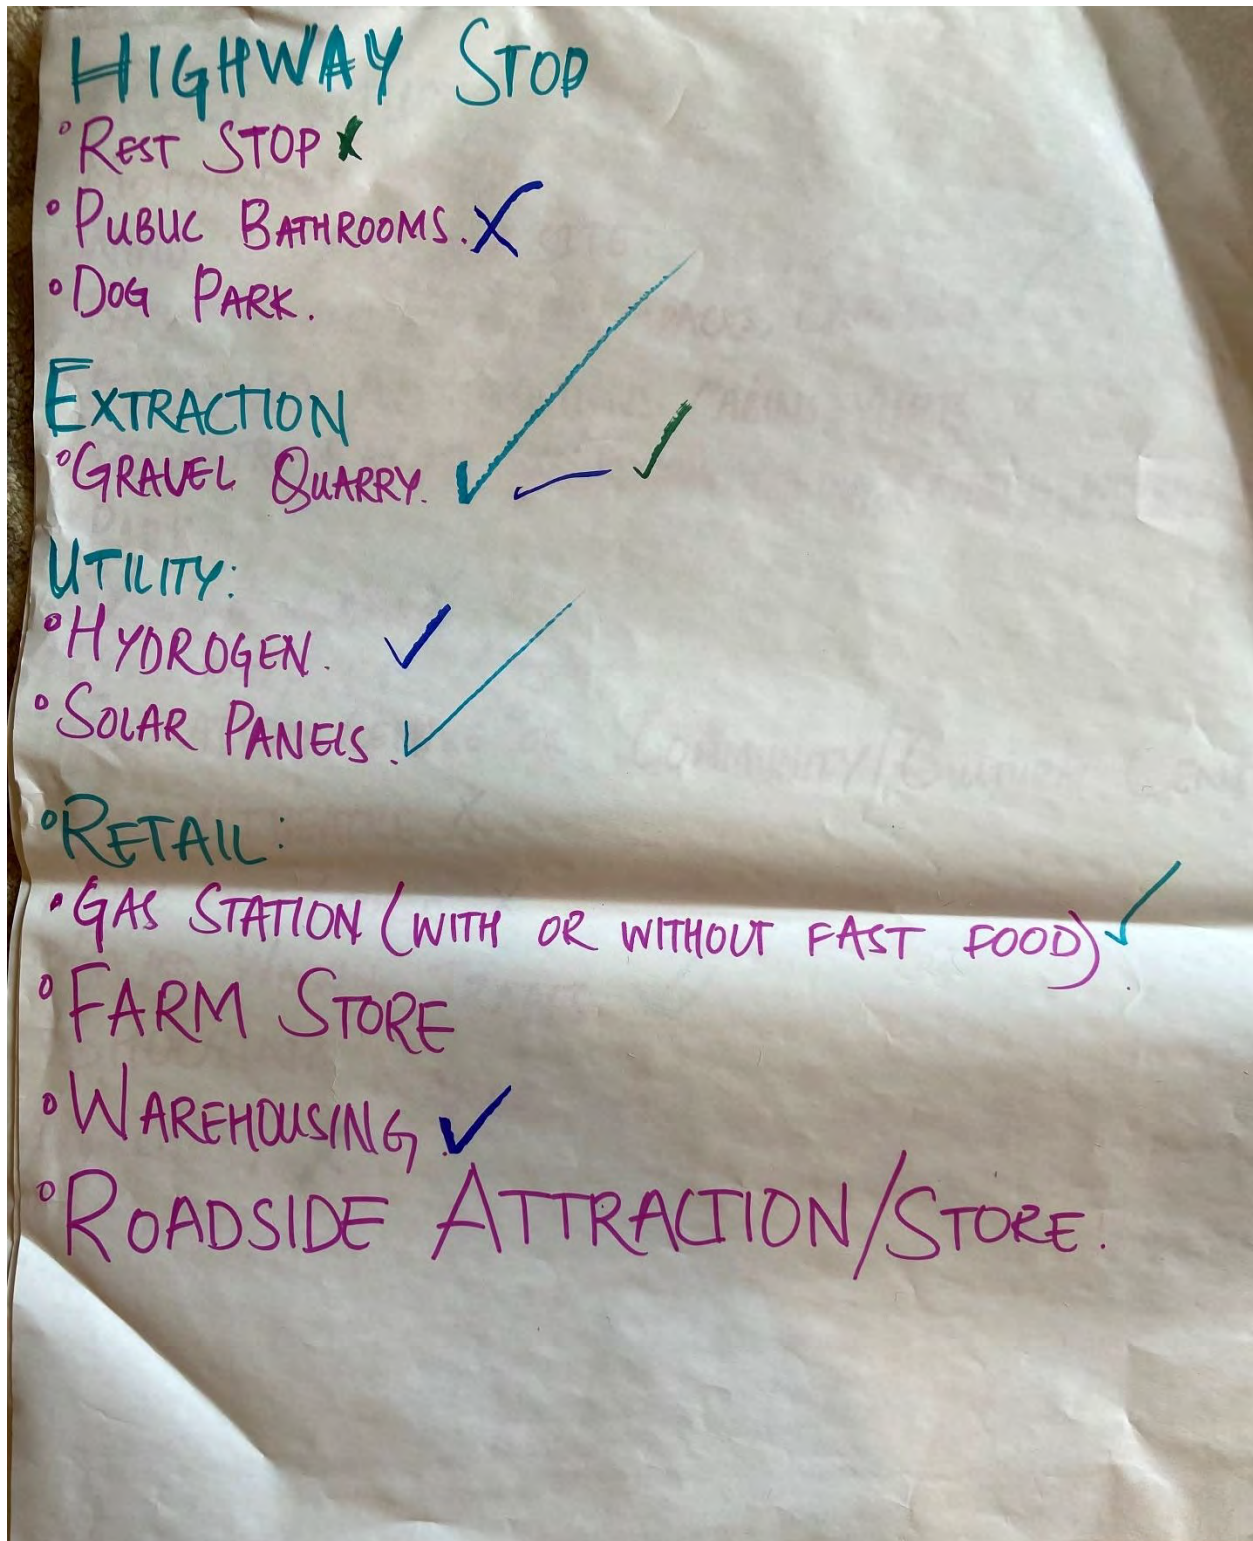 HIGHWAY STOP
° REST STOP ✗
° PUBLIC BATHROOMS. ✗
° DOG PARK.
EXTRACTION
° GRAVEL QUARRY. ✓ ✓ ✓
UTILITY:
° HYDROGEN. ✓
° SOLAR PANELS. ✓
° RETAIL:
• GAS STATION (WITH OR WITHOUT FAST FOOD). ✓
° FARM STORE
° WAREHOUSING. ✓
° ROADSIDE ATTRACTION/STORE.